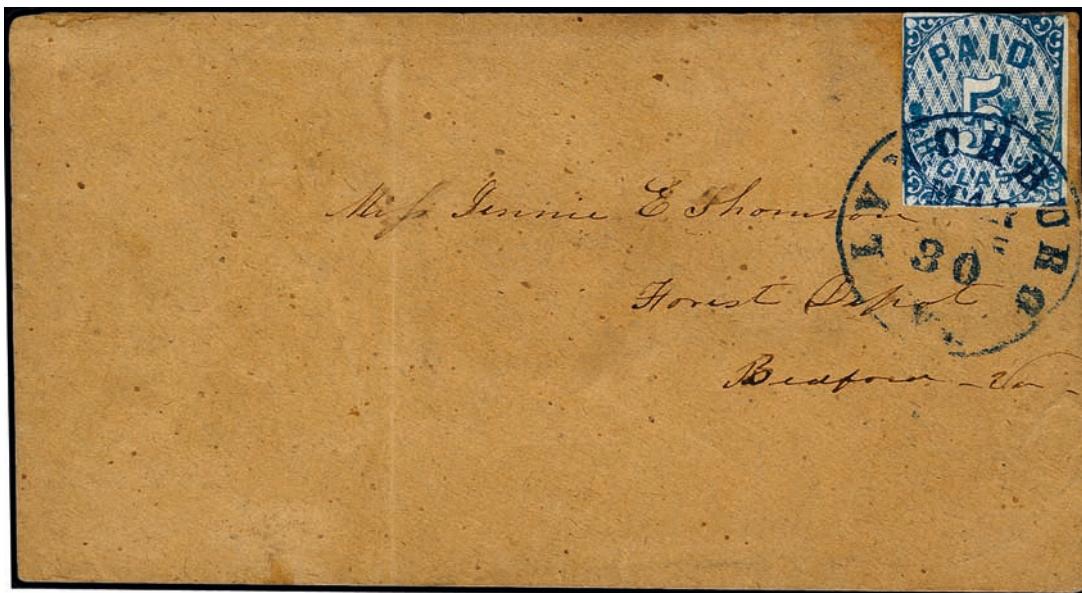 PAID
5
LYNCHBURG
30
Miss Jennie E Thomson
Forest Depot
Bedford - Va -